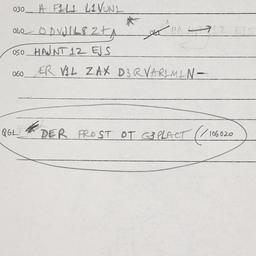 030 A F1L1 L1VUNL
040 ODVJIL8Z+A
050 HAJNT12 EJS
060 ER V1L ZAX D3RVARLMLN-
QGL DER FROST OT G3PLACT (/106020